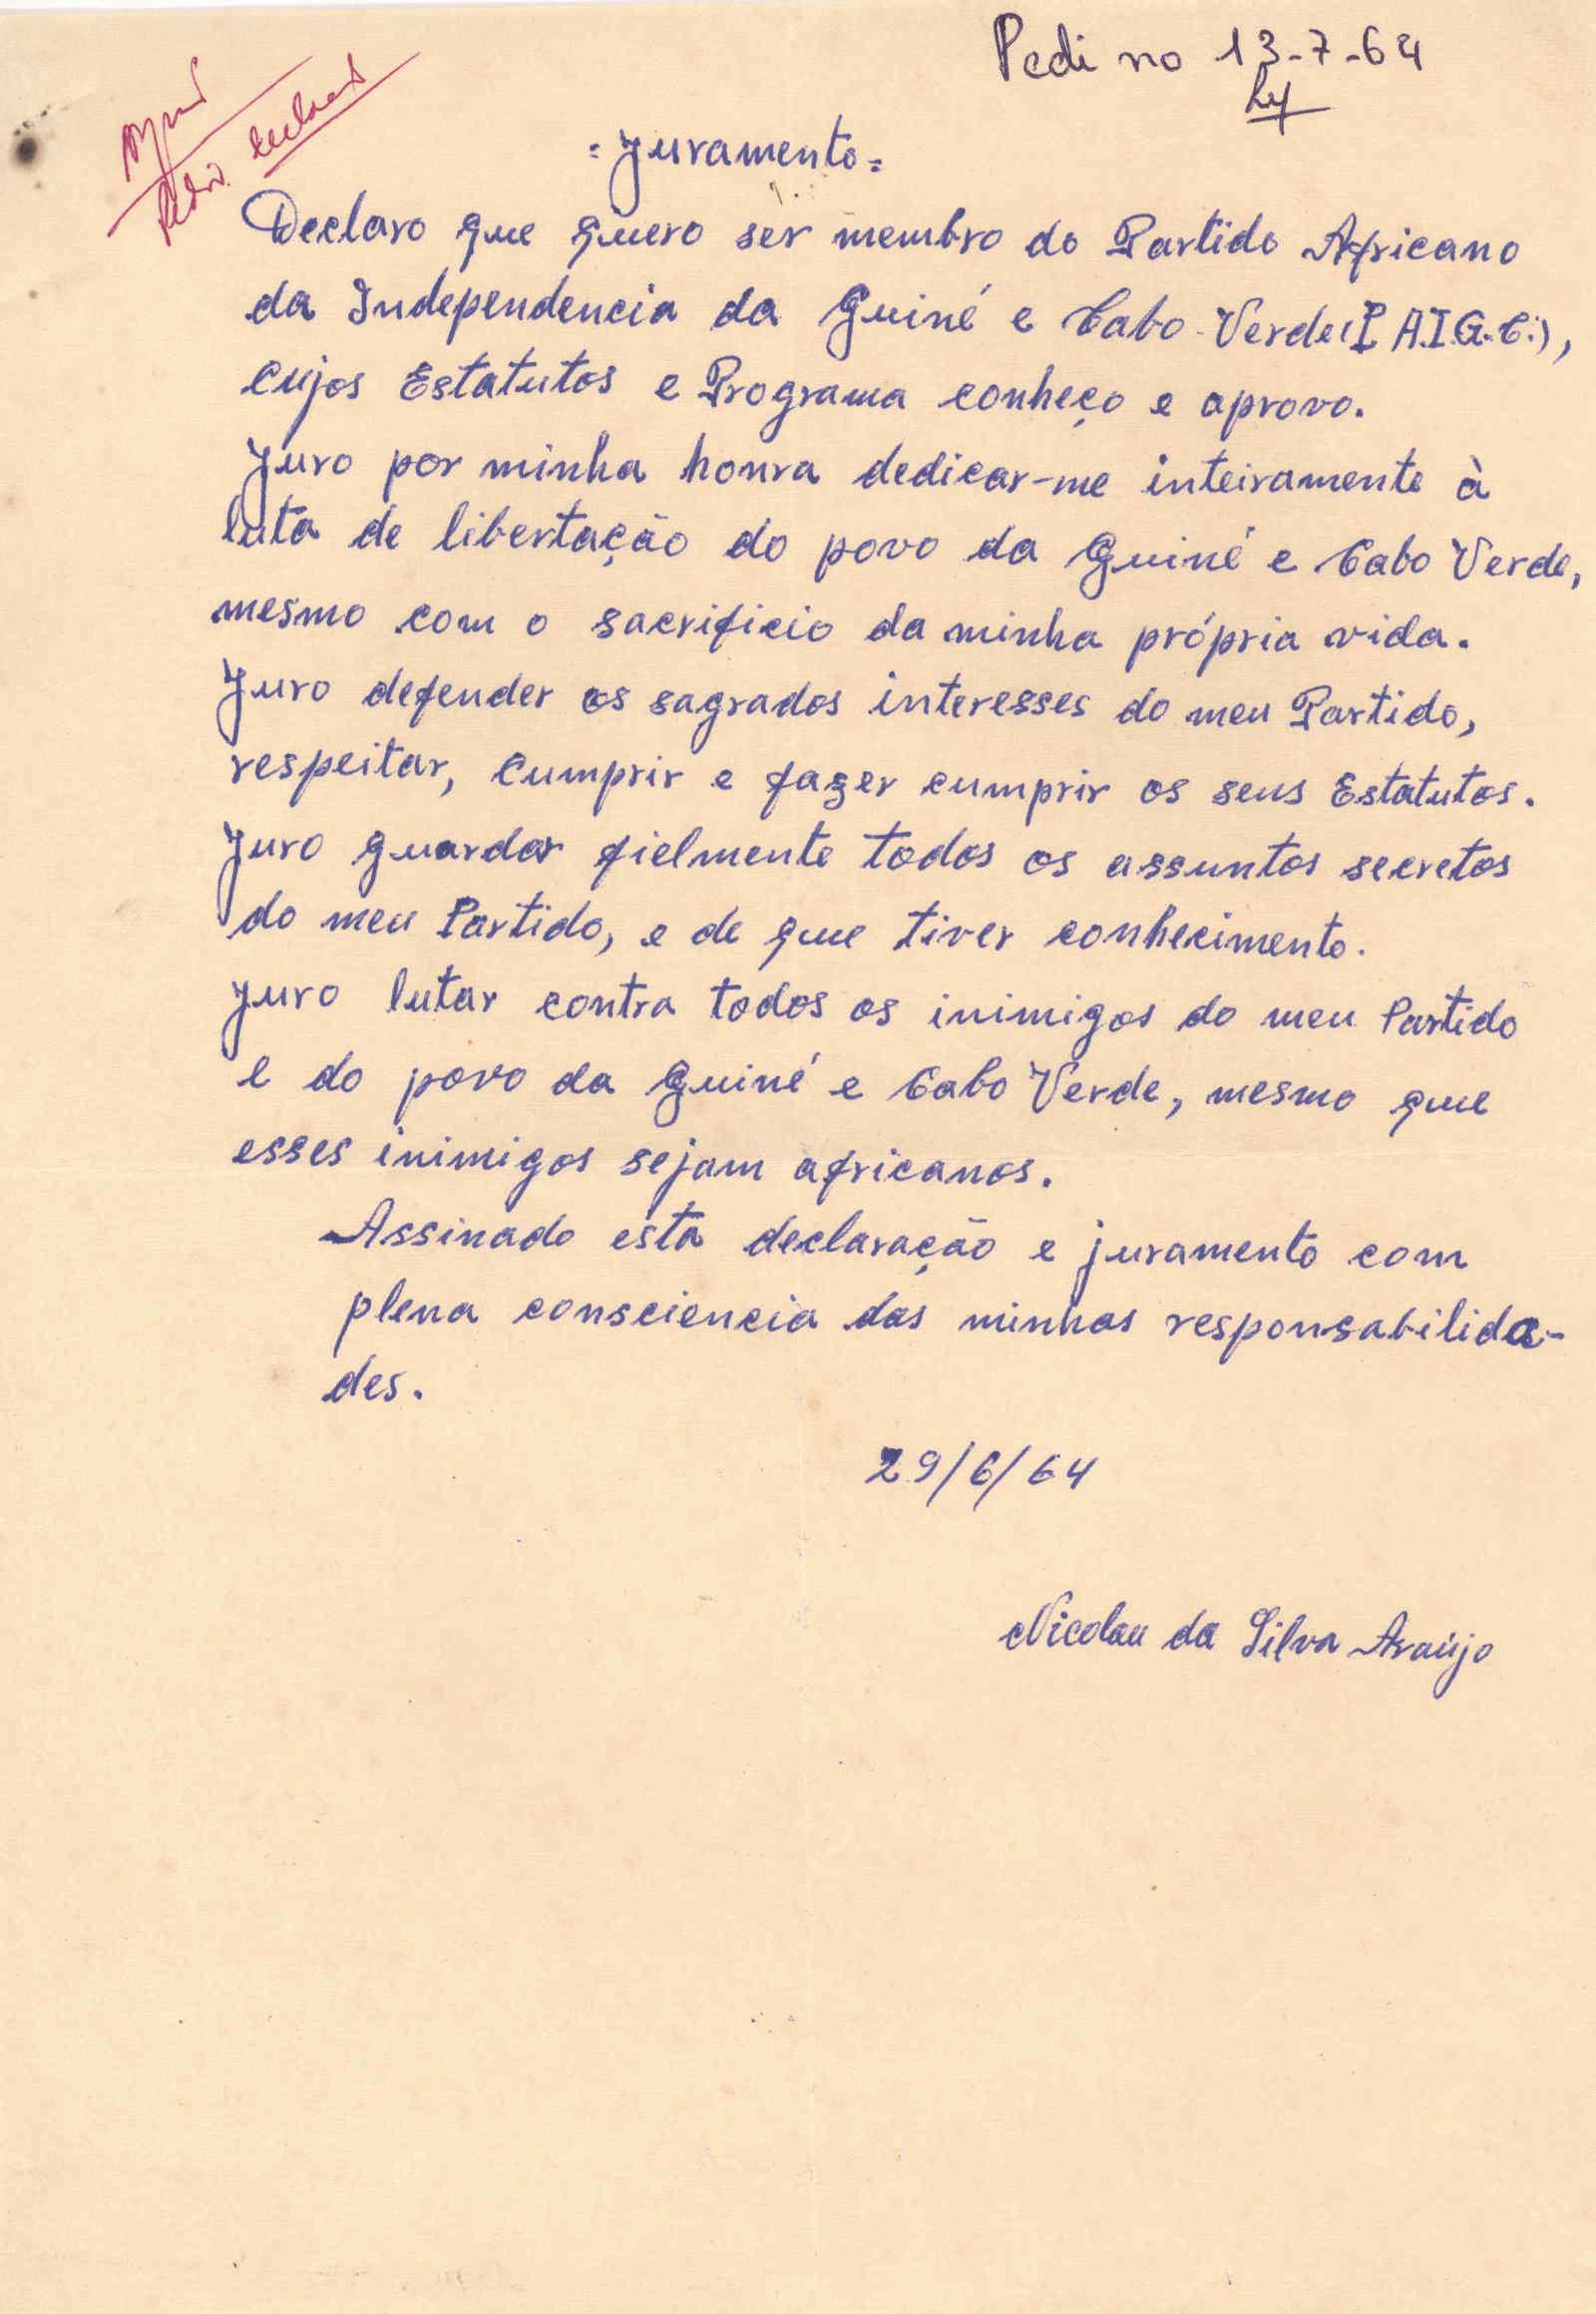 Pedi no 13-7-64
= Juramento =
Declaro que quero ser membro do Partido Africano
da Independencia da Guiné e Cabo-Verde (P.A.I.G.C.),
cujos Estatutos e Programa conheço e aprovo.
Juro por minha honra dedicar-me inteiramente à
luta de libertação do povo da Guiné e Cabo Verde,
mesmo com o sacrificio da minha própria vida.
Juro defender os sagrados interesses do meu Partido,
respeitar, cumprir e fazer cumprir os seus Estatutos.
Juro guardar fielmente todos os assuntos secretos
do meu Partido, e de que tiver conhecimento.
Juro lutar contra todos os inimigos do meu Partido
e do povo da Guiné e Cabo Verde, mesmo que
esses inimigos sejam africanos.
Assinado esta declaração e juramento com
plena consciencia das minhas responsabilida-
des.
29/6/64
Nicolau da Silva Araújo